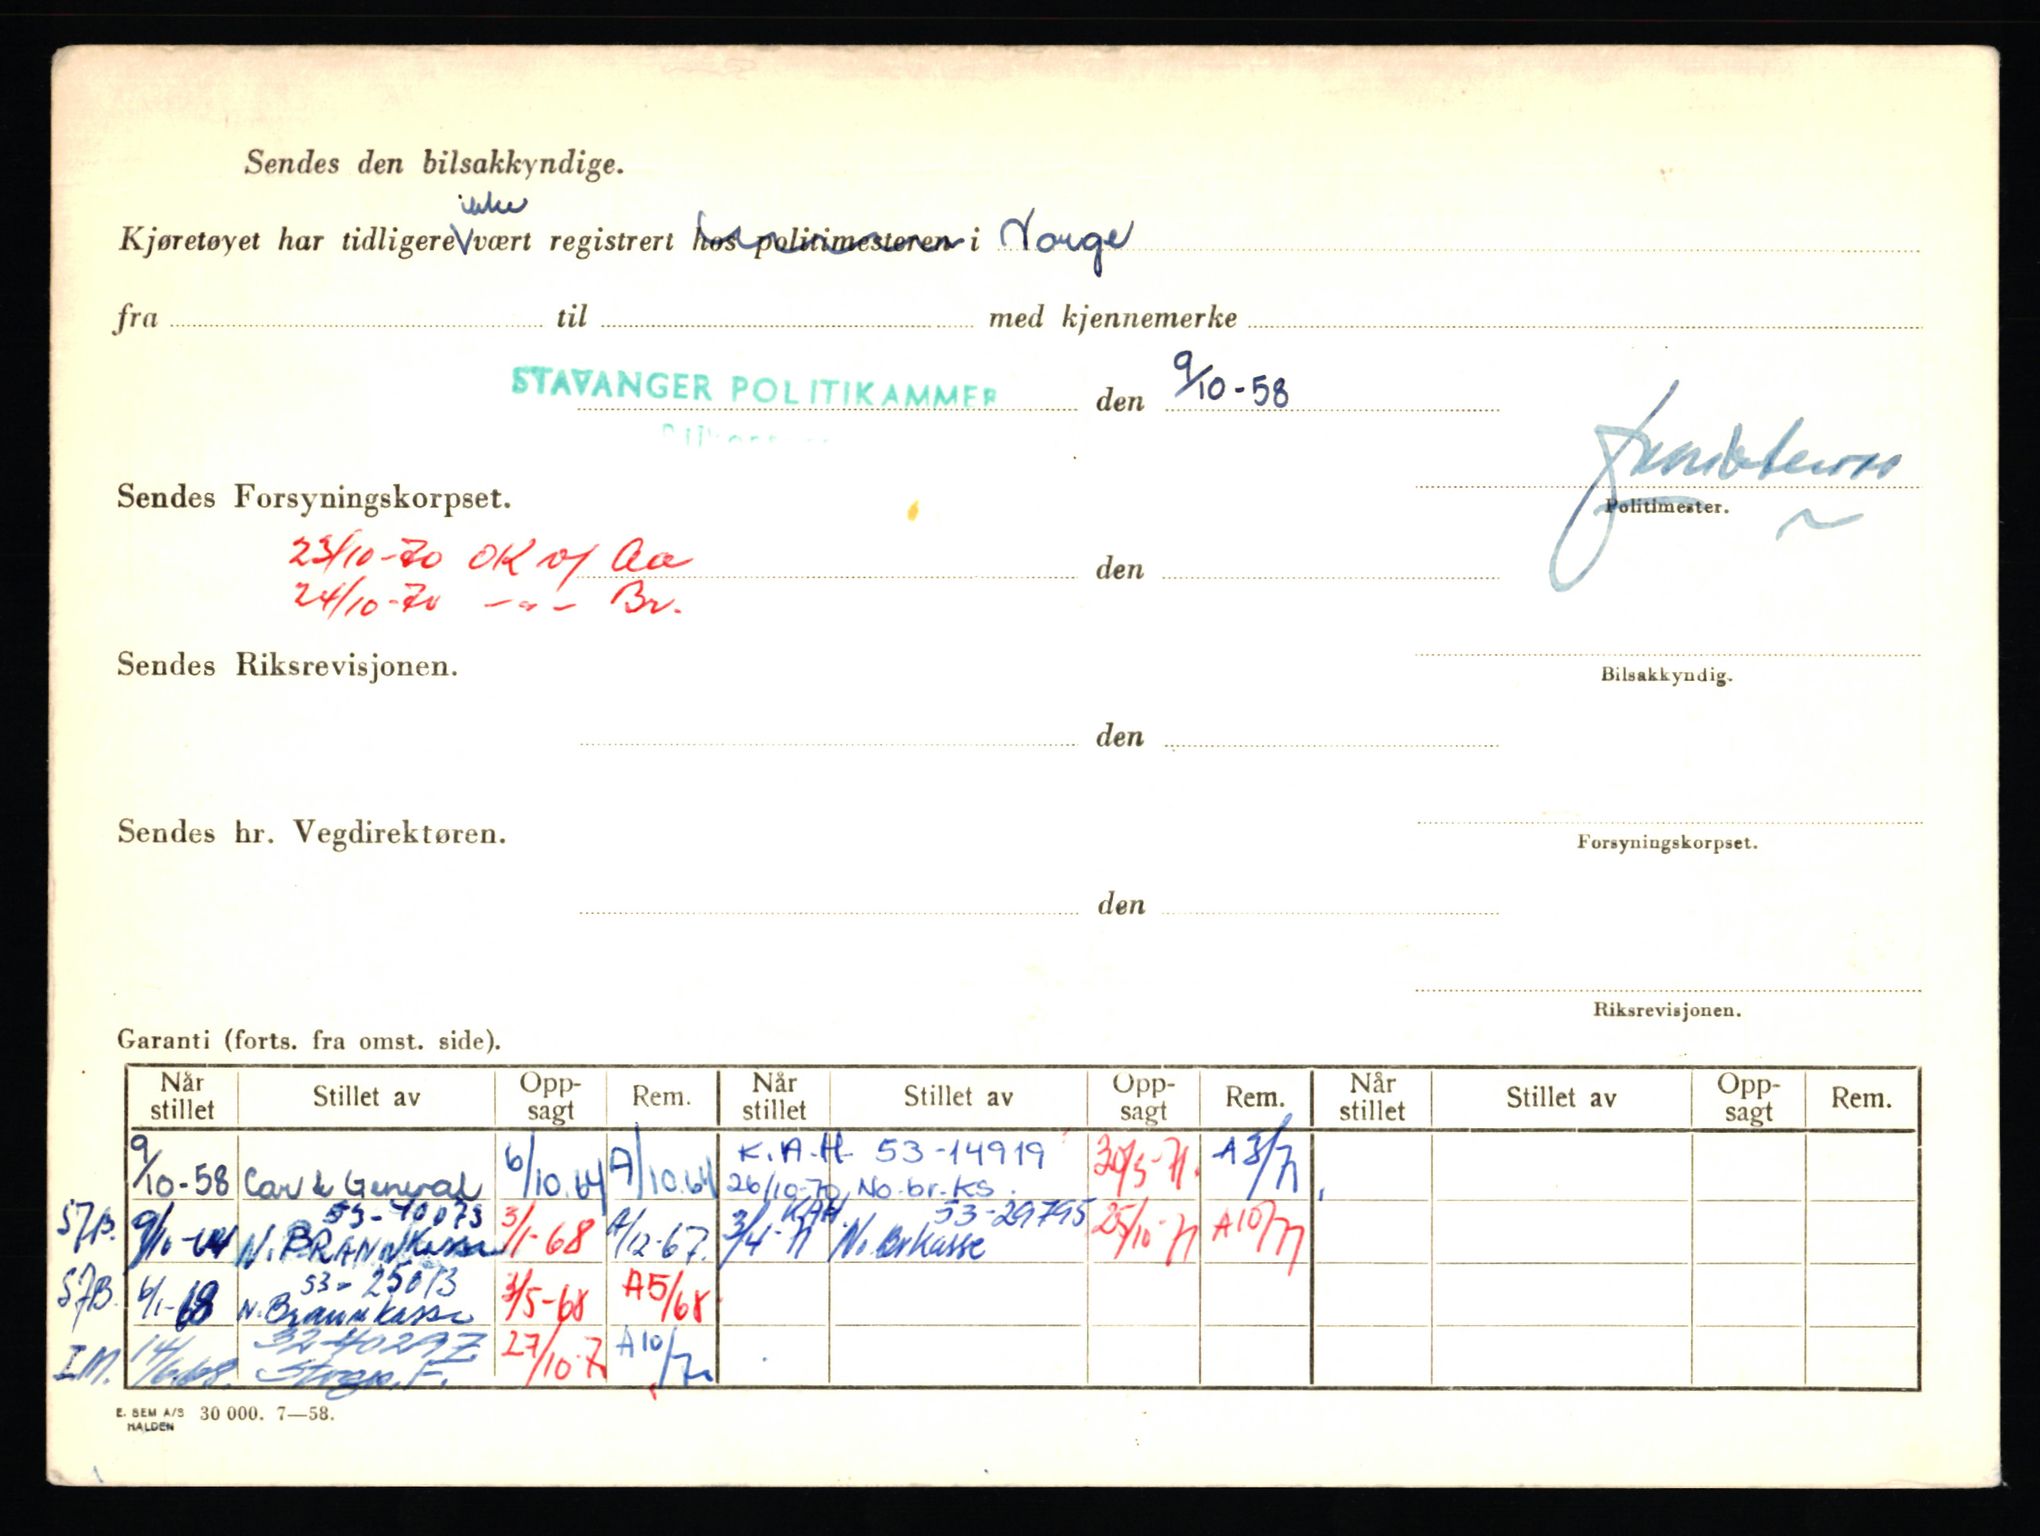 Sendes den bilsakkyndige.
ikke
Kjøretøyet har tidligere V vært registrert hos politimesteren i Norge
fra til med kjennemerke
STAVANGER POLITIKAMMER den 9/10-58
Sendes Forsyningskorpset.
Politimester.
23/10-70 OK v/ Aa den
24/10-70 -"- Br.
Sendes Riksrevisjonen.
Bilsakkyndig.
den
Sendes hr. Vegdirektøren.
Forsyningskorpset.
den
Riksrevisjonen.
Garanti (forts. fra omst. side).
Når stillet Stillet av Opp-sagt Rem. Når stillet Stillet av Opp-sagt Rem. Når stillet Stillet av Opp-sagt Rem.
K.A.H. 53-14919
9/10-58 Car & General 6/10.64 A/10.64 26/10-70 No.br.ks. 30/3-71. A3/71
53-40073 KAH. 53-29795
S7B. 9/10-64 N. BRANNkasse 3/1-68 A/12-67. 3/4-71 No. Brkasse 25/10-71 A10/71
53-25013
S7B. 6/1-68 N. Brannkasse 3/5-68 A5/68
32-40297
I.M. 14/6.68. Storg. F. 27/10-70 A10/70
E. SEM A/S HALDEN 30 000. 7—58.